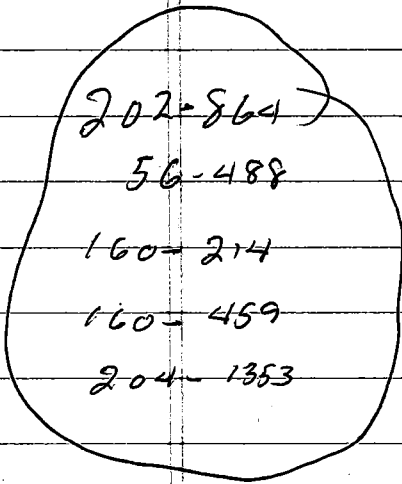 202-864
56-488
160-214
160-459
204-1353